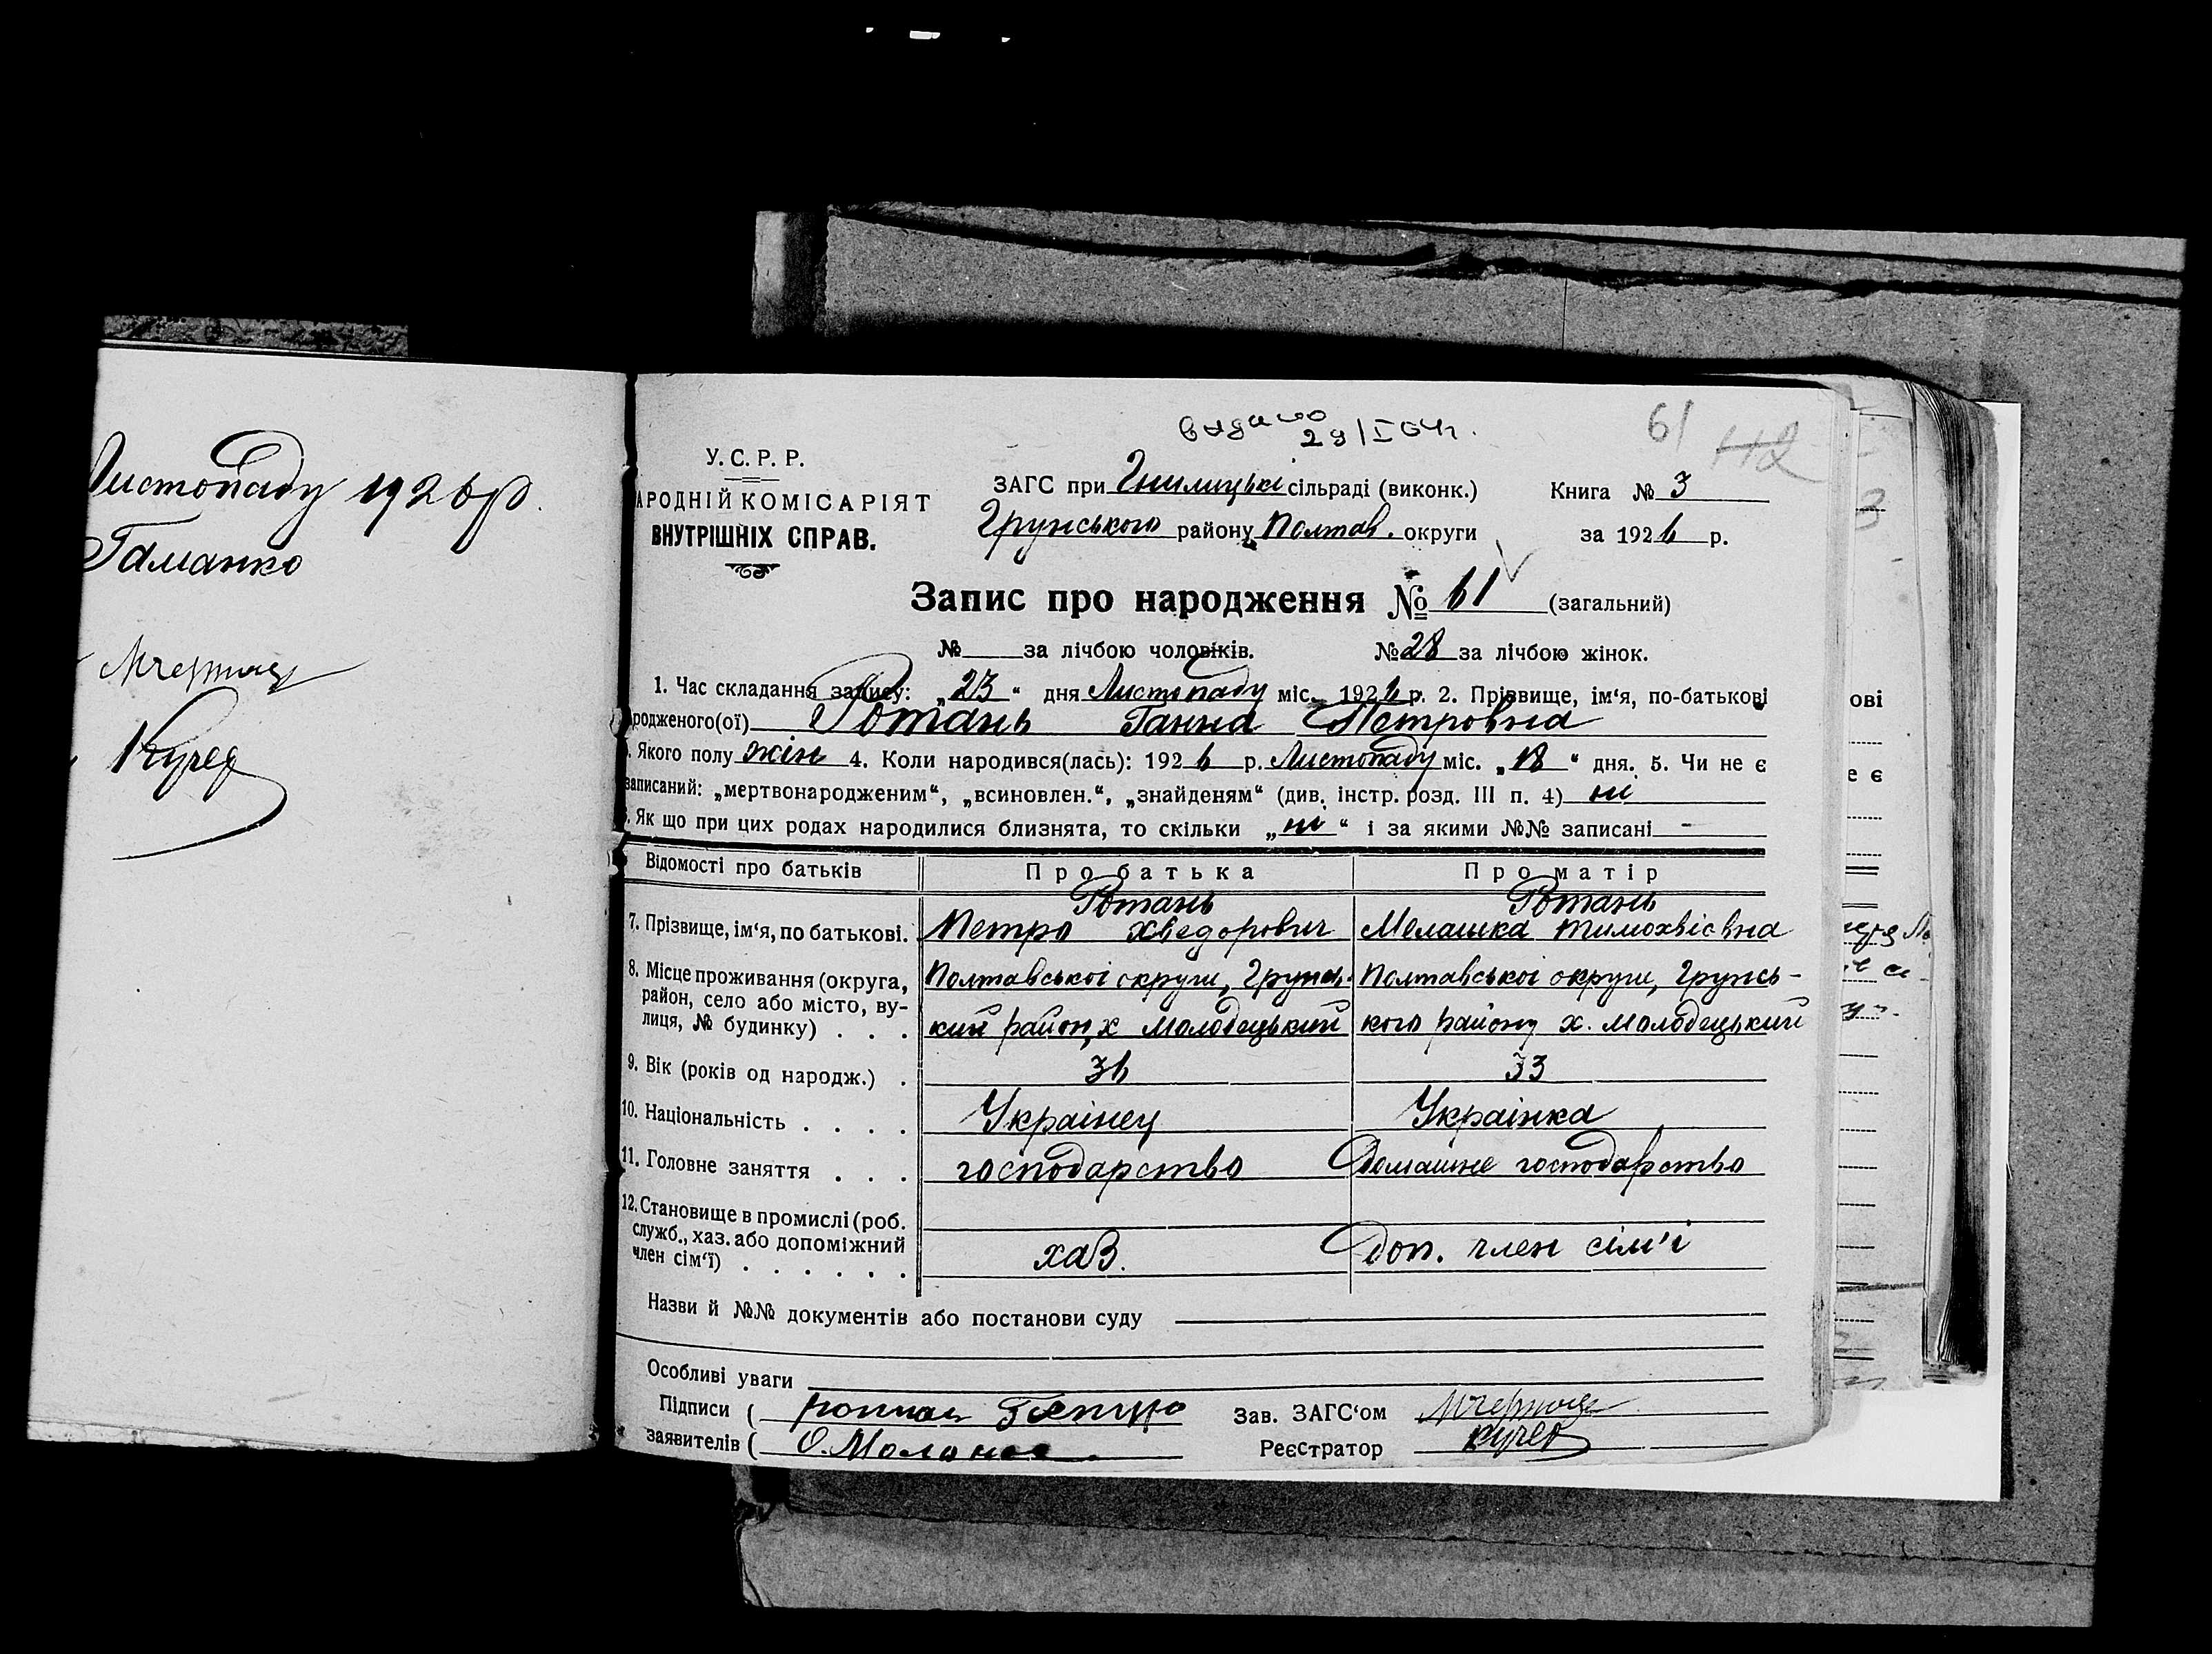 Листопаду 1926 р.
Гаманко
Кучер
видано
29/I 64 г.
61 112
У.С.Р.Р.
АРОДНІЙ КОМІСАРІЯТ
ВНУТРІШНІХ СПРАВ.
ЗАГС при Гнилицькі сільраді (виконк.)
Грунського району Полтав. округи
Книга № 3
за 1926 р.
Запис про народження № 61 (загальний)
№ за лічбою чоловіків. № 28 за лічбою жінок.
1. Час складання запису: „23“ дня Листопаду міс. 1926 р. 2. Прізвище, ім'я, по-батькові
родженого(ої) Ротань Ганна Петровна
. Якого полу жін 4. Коли народився(лась): 1926 р. Листопаду міс. „18“ дня. 5. Чи не є
записаний: „мертвонародженим“, „всиновлен.“, „знайденям“ (див. інстр. розд. III п. 4) ні
. Як що при цих родах народилися близнята, то скільки „ні“ і за якими №№ записані -
Відомості про батьків Про батька Про матір
Ротань Ротань
7. Прізвище, ім'я, по батькові. Петро Хведорович Мелашка Тимохвієвна
8. Місце проживання (округа, район, село або місто, вулиця, № будинку) . . .
Полтавської округи, Грунський район, х Молодецький
Полтавської округи, Грунсь-
кого району х. Молодецький
9. Вік (років од народж.) . 36 33
10. Національність . . . . Українец Українка
11. Головне заняття . . . господарство Домашнє господарство
12. Становище в промислі (роб.
служб., хаз. або допоміжний
член сім'ї) . . . . . . хаз. Доп. член сім'ї
Назви й №№ документів або постанови суду
Особливі уваги
Підписи (
Зав. ЗАГС'ом
заявителів (
Реєстратор Кучер
ові
е є